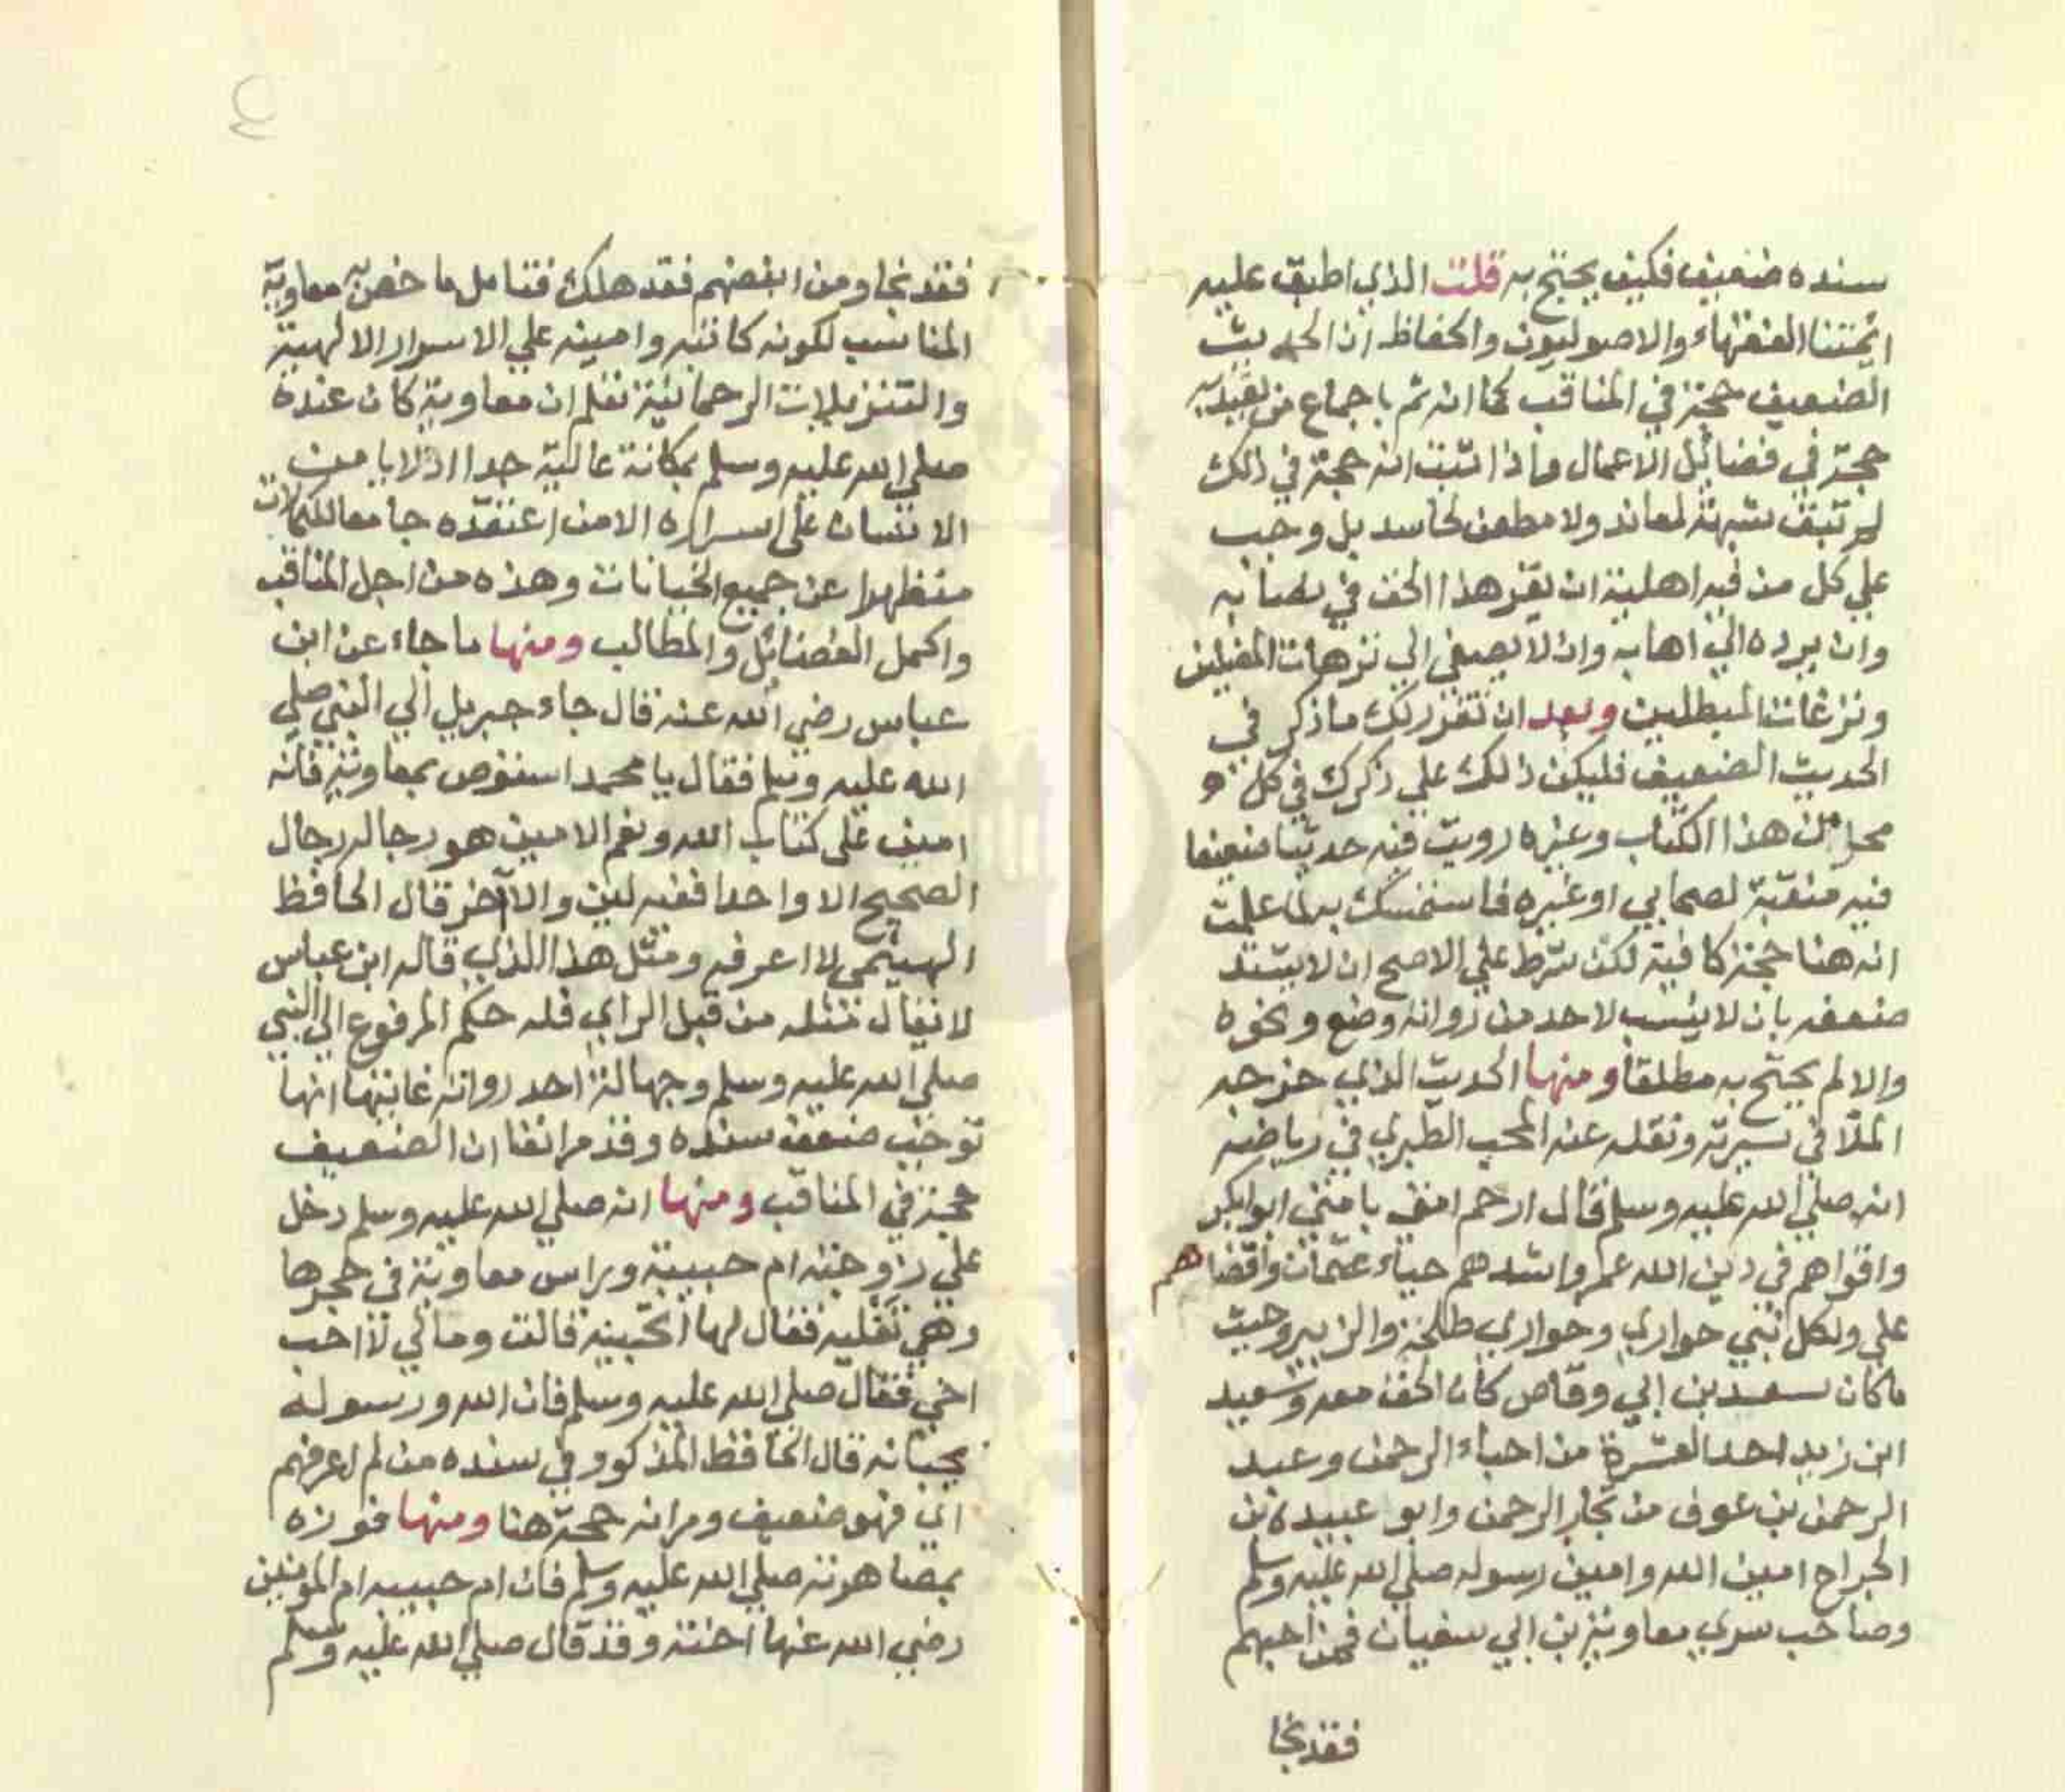 سنده ضعيف فكيف يحتج به قلت الذي اطبق عليه
ائمتنا الفقهاء والاصوليون والحفاظ ان الحديث
الضعيف حجة في المناقب كما انه ثم باجماع من يعتد به
حجة في فضائل الاعمال واذا اثبت انه حجة في ذلك
لم تبق شبهة لمعاند ولا مطعن لحاسد بل وجب
علي كل من فيه اهلية ان يقر هذا الحق في نصابه
وان يرده الي اهابه وان لا يصغي الي ترهات المضلين
ونزغات المبطلين وبعد ان تقرر لك ما ذكر في
الحديث الضعيف فليكن ذلك علي ذكرك في كل
محل من هذا الكتاب وغيره رويت فيه حديثا ضعيفا
فيه منقبة لصحابي او غيره فاستمسك به لما علمت
انه هنا حجة كافية لكن شرط علي الاصح ان لا يشتد
ضعفه بان لا ينسب لاحد من رواته وضع ونحوه
والا لم يحتج به مطلقا ومنها الحديث الذي خرجه
الملا في سيرته ونقله عنه المحب الطبري في رياضه
انه صلي الله عليه وسلم قال ارحم امتي بامتي ابو بكر
واقواهم في دين الله عمر واشدهم حياء عثمان واقضاهم
علي ولكل نبي حواري وحواري طلحة والزبير وحيث
ما كان سعد بن ابي وقاص كان الحق معه وسعيد
ابن زيد احد العشرة من احباء الرحمن وعبد
الرحمن بن عوف من تجار الرحمن وابو عبيدة بن
الجراح امين الله وامين رسوله صلي الله عليه وسلم
وصاحب سري معاوية بن ابي سفيان فمن احبهم
فقد نجا
فقد نجا ومن ابغضهم فقد هلك فتامل ما خص به معاوية
المناسب لكونه كاتبه وامينه علي الاسرار الالهية
والتنزيلات الرحمانية تعلم ان معاوية كان عنده
صلي الله عليه وسلم بمكانة عالية جدا اذ لا يامن
الانسان علي اسراره الا من اعتقده جامعا للكمالات
متطهرا عن جميع الخيانات وهذه من اجل المناقب
واكمل الفضائل والمطالب ومنها ما جاء عن ابن
عباس رضي الله عنه قال جاء جبريل الي النبي صلي
الله عليه وسلم فقال يا محمد استوص بمعاوية فانه
امين علي كتاب الله ونعم الامين هو رجاله رجال
الصحيح الا واحدا ففيه لين والا اخر قال الحافظ
الهيتمي لا اعرفه ومثل هذا الذي قاله ابن عباس
لا يقال مثله من قبل الراي فله حكم المرفوع الي النبي
صلي الله عليه وسلم وجهالة احد رواته غايتها انها
توجب ضعف سنده وقد مر انفا ان الضعيف
حجة في المناقب ومنها انه صلي الله عليه وسلم دخل
علي زوجته ام حبيبة وراس معاوية في حجرها
وهي تقليه فقال لها اتحبينه قالت ومالي لا احب
اخي فقال صلي الله عليه وسلم فان الله ورسوله
يحبانه قال الحافظ المذكور في سنده من لم اعرفهم
اي فهو ضعيف ومر انه حجة هنا ومنها فوزه
بمصاهرته صلي الله عليه وسلم فان ام حبيبه ام المؤمنين
رضي الله عنها اخته وقد قال صلي الله عليه وسلم